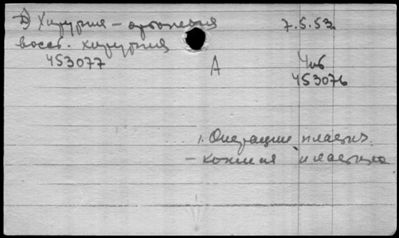 D) Хирургия – ортопедия 7.5.53.
восст. хирургия
453077 А Чиб
453076
1. Операции пластич.
– кожная пластика